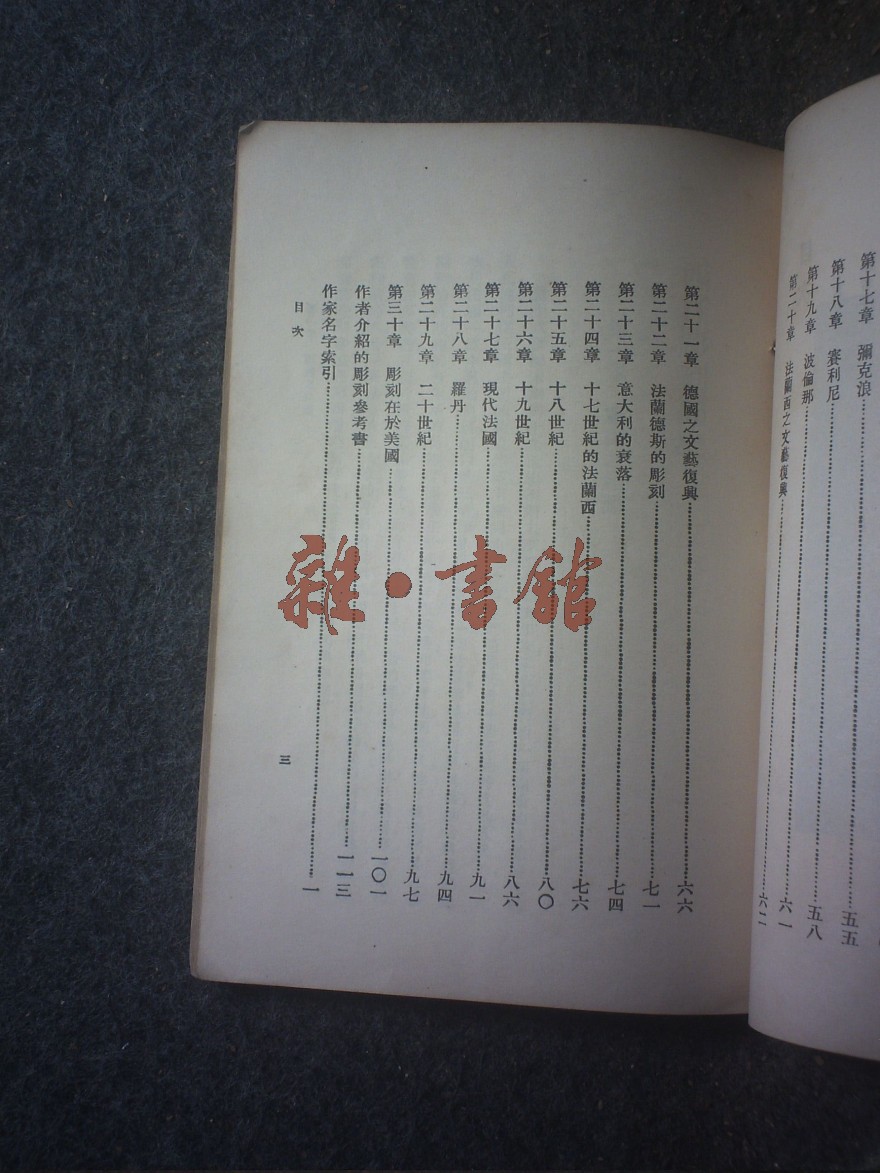 第十七章 彌克浪
第十八章 賽利尼……五五
第十九章 波倫那……五八
第二十章 法蘭西之文藝復興……六一
六二
第二十一章 德國之文藝復興……六六
第二十二章 法蘭德斯的彫刻……七一
第二十三章 意大利的衰落……七四
第二十四章 十七世紀的法蘭西……七六
第二十五章 十八世紀……八〇
第二十六章 十九世紀……八六
第二十七章 現代法國……九一
第二十八章 羅丹……九四
第二十九章 二十世紀……九七
第三十章 彫刻在於美國……一〇一
作者介紹的彫刻參考書……一一三
作家名字索引……一
目次
三
雜·書館